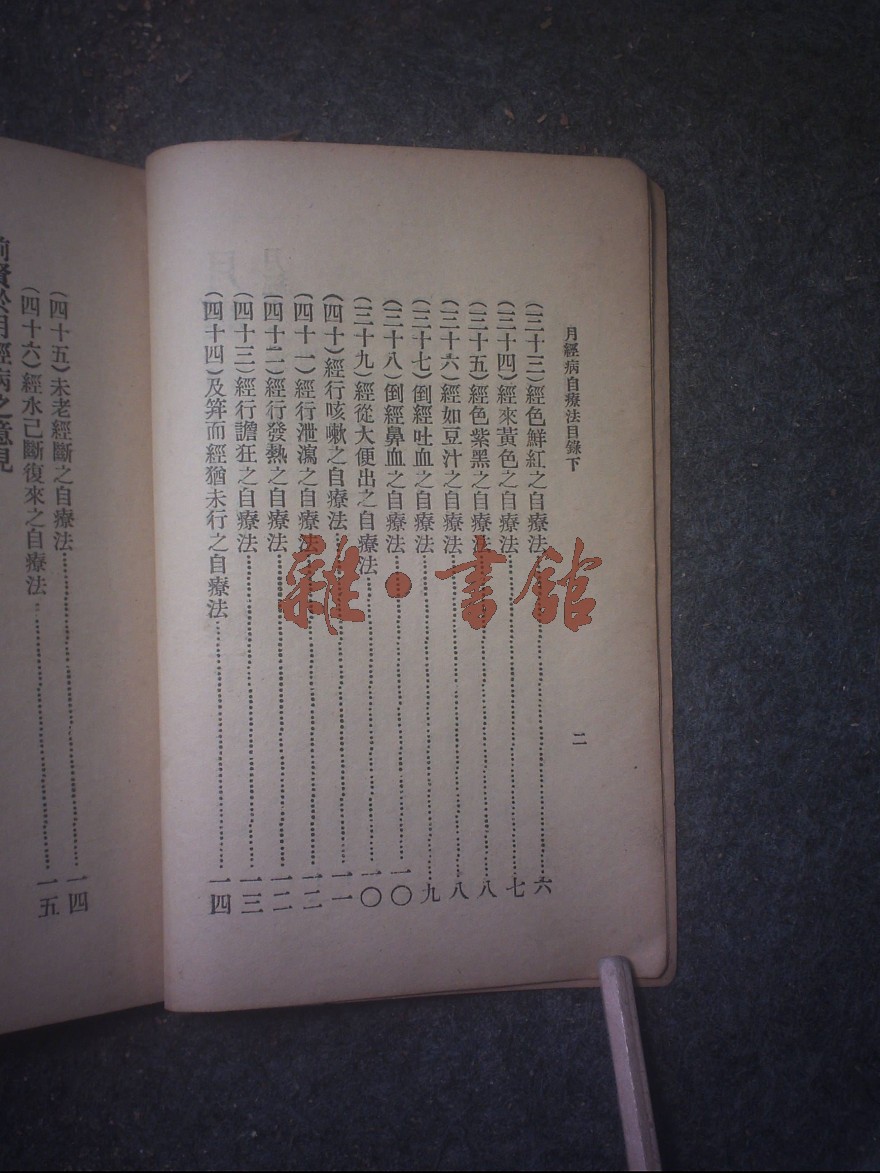 月經病自療法目錄下
二
(三十三)經色鮮紅之自療法……六
(三十四)經來黃色之自療法……七
(三十五)經色紫黑之自療法……八
(三十六)經如豆汁之自療法……八
(三十七)倒經吐血之自療法……九
(三十八)倒經鼻血之自療法……一〇
(三十九)經從大便出之自療法……一〇
(四十)經行咳嗽之自療法……一一
(四十一)經行泄瀉之自療法……一二
(四十二)經行發熱之自療法……一二
(四十三)經行譫狂之自療法……一三
(四十四)及笄而經猶未行之自療法……一四
(四十五)未老經斷之自療法……一四
(四十六)經水已斷復來之自療法……一五
前賢於月經病之意見
雜·書館